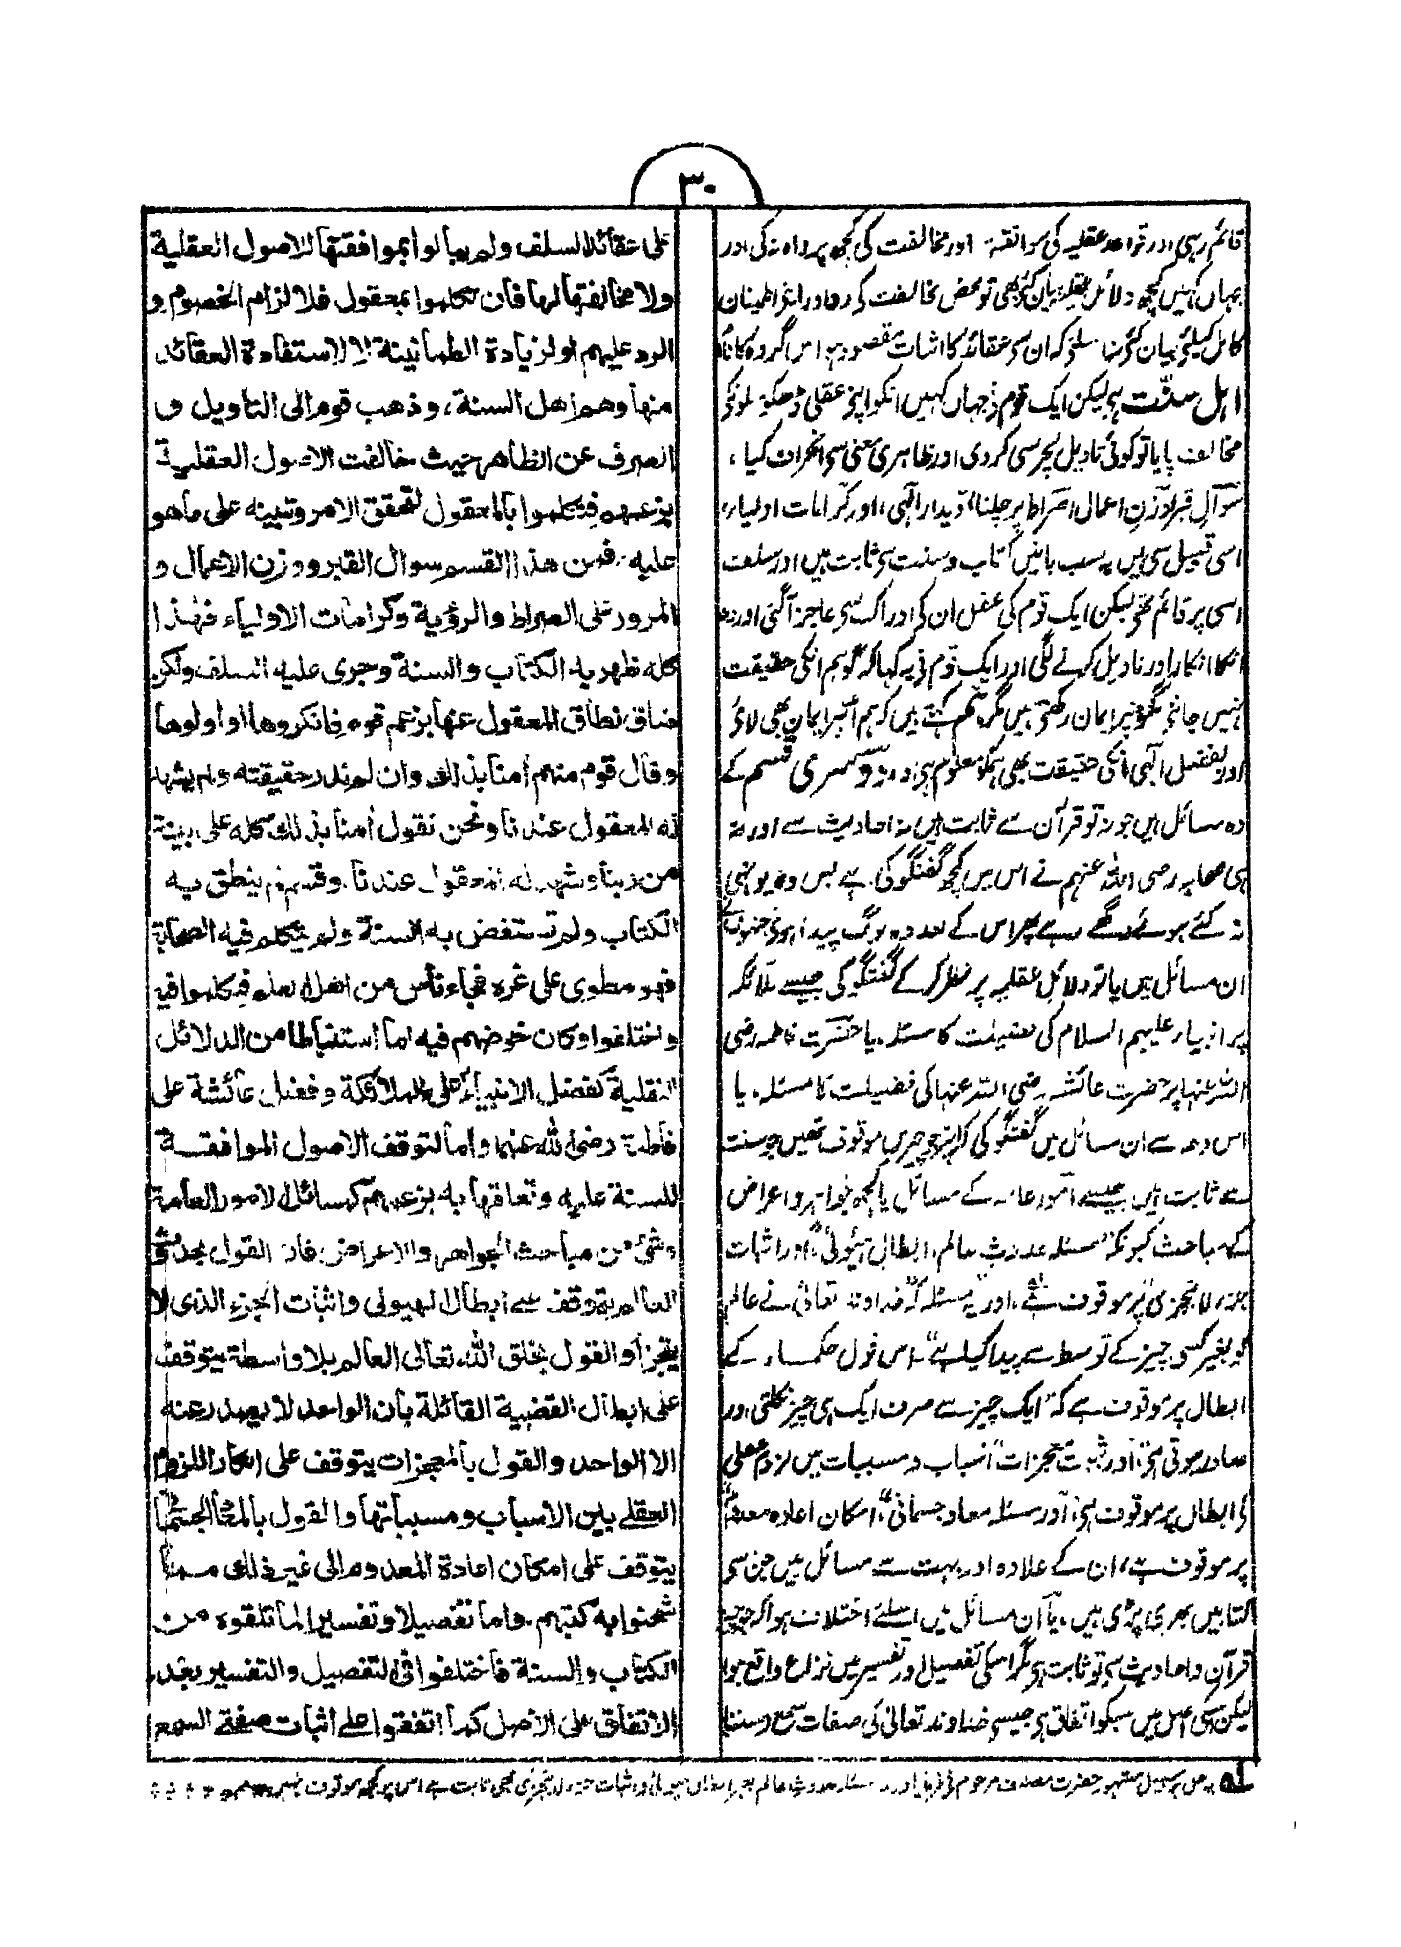 ۳۰
قائم رہی اور قواعد عقلیہ کی موافقت اور مخالفت کی کچھ پرواہ نہ کی اور
جہاں کہیں کچھ دلائل عقلیہ بیان کئے بھی تو محض مخالفت کی رد اور اپنے اطمینان
کامل کیلئے بیان کئے نہ اسلئے کہ ان سے عقائد کا اثبات مقصود ہو، اس گروہ کا نام
اہل سنت ہے لیکن ایک قوم نے جہاں کہیں انکو اپنے عقلی ڈھکوسلونکے
مخالف پایا تو کوئی تاویل لچر سی کردی اور ظاہری معنی سے انحراف کیا،
سوال قبر، وزن اعمال، صراط پر چلنا، دیدار الٰہی، اور کرامات اولیاء،
اسی قبیل سے ہیں یہ سب باتیں کتاب و سنت سے ثابت ہیں اور سلف
اسی پر قائم تھے لیکن ایک قوم کی عقل ان کے ادراک سے عاجز آگئی اور وہ
انکا انکار اور تاویل کہنے لگی اور ایک قوم نے یہ کہا کہ گو ہم انکی حقیقت
نہیں جانتے مگر انپر ایمان رکھتے ہیں مگر ہم کہتے ہیں کہ ہم انپر ایمان بھی لائے
اور بفضل الٰہی انکی حقیقت بھی ہمکو معلوم ہے اور دوسری قسم کے
وہ مسائل ہیں جو نہ تو قرآن سے ثابت ہیں نہ احادیث سے اور نہ
ہی صحابہ رضی اللہ عنہم نے اس میں کچھ گفتگو کی ہے بس وہ یونہی
تہ کئے ہوئے رکھے رہے پھر اس کے بعد وہ لوگ پیدا ہوئے جنہوں نے
ان مسائل میں یا تو دلائل عقلیہ پر نظر کر کے گفتگو کی جیسے ملائکہ
پر انبیاء علیہم السلام کی فضیلت کا مسئلہ یا حضرت فاطمہ رضی
اللہ عنہا پر حضرت عائشہ رضی اللہ عنہا کی فضیلت کا مسئلہ، یا
اس وجہ سے ان مسائل میں گفتگو کی کہ انپر وہ چیزیں موقوف تھیں جو سنت
سے ثابت ہیں جیسے امور عامہ کے مسائل یا کچھ جواہر و اعراض
کے مباحث کیونکہ مسئلہ حدوث عالم، ابطال ہیولیٰ، اور اثبات
جزء لا یتجزی پر موقوف ہے، اور یہ مسئلہ کہ خداوند تعالیٰ نے عالم
کو بغیر کسی چیز کے توسط سے پیدا کیا ہے، اس قول حکماء کے
ابطال پر موقوف ہے کہ ایک چیز سے صرف ایک ہی چیز نکلتی اور
صادر ہوتی ہے، اور ثبوت معجزات اسباب و مسببات میں لزوم عقلی
کے ابطال پر موقوف ہے، اور مسئلہ معاد جسمانی، امکان اعادہ معدوم
پر موقوف ہے، ان کے علاوہ اور بہت سے مسائل ہیں جن سے
کتابیں بھری پڑی ہیں، یا ان مسائل میں اسلئے اختلاف ہوا کہ جو چیز
قرآن و احادیث سے تو ثابت ہے مگر اسکی تفصیل اور تفسیر میں نزاع واقع ہوا
لیکن اسکی اصل میں سبکو اتفاق ہے جیسے خداوند تعالیٰ کی صفات سمع (سننا
على عقائد السلف ولم يبالوا بموافقتها للاصول العقلية
ولا مخالفتها لها فان تكلموا بمعقول فلا لزام الخصوم و
الرد عليهم او لزيادة الطمانينة لا لاستفادة العقائد
منها وهم اهل السنة، وذهب قوم الى التاويل و
الصرف عن الظاهر حيث خالفت الاصول العقلية
بزعمهم فتكلموا بالمعقول لتحقق الامر وتبينه على ما هو
عليه، فمن هذا القسم سوال القبر ووزن الاعمال و
المرور على الصراط والرؤية وكرامات الاولياء فهذا
كله ظهر به الكتاب والسنة وجرى عليه السلف ولكن
ضاق نطاق المعقول عنها بزعم قوم فانكروها او اولوها
وقال قوم منهم أمنا بذلك وان لم ندر حقيقته ولم يشهد
له المعقول عندنا ونحن نقول أمنا بذلك كله على بينة
من ربنا وشهد له المعقول عندنا، وقسم لم ينطق به
الكتاب ولم تستفض به السنة ولم يتكلم فيه الصحابة
فهو مطوى على غره فجاء ناس من اهل العلم فتكلموا فيه
واختلفوا وكان خوضهم فيه اما استنباطا من الدلائل
النقلية كفضل الانبياء على الملائكة وفضل عائشة على
فاطمة رضى الله عنهما واما لتوقف الاصول الموافقة
للسنة عليه وتعلقها به بزعمهم كمسائل الامور العامة
وشئ من مباحث الجواهر والاعراض فان القول بحدوث
العالم يتوقف على ابطال الهيولى واثبات الجزء الذى لا
يتجزأ والقول بخلق الله تعالى العالم بلا واسطة يتوقف
على ابطال القضية القائلة بان الواحد لا يصدر عنه
الا الواحد والقول بالمعجزات يتوقف على انكار اللزوم
العقلى بين الاسباب ومسبباتها والقول بالمعاد الجسمانى
يتوقف على امكان اعادة المعدوم الى غير ذلك مما
شحنوا به كتبهم، واما تفصيلا وتفسيرا لما تلقوه من
الكتاب والسنة فاختلفوا فى التفصيل والتفسير بعد
الاتفاق على الاصل كما اتفقوا على اثبات صفتى السمع